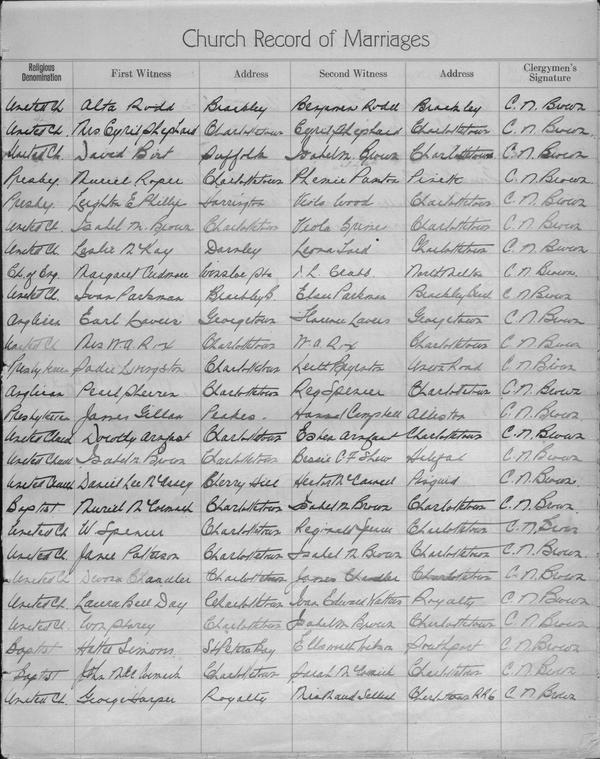 Church Record of Marriages
Religious Denomination First Witness Address Second Witness Address Clergymen's Signature
United Ch. Alta Rodd Brackley Benjamin Rodd Brackley C. M. Brown
United Ch. Mrs Cyril Shephard Charlottetown Cyril Shephard Charlottetown C. M. Brown
United Ch. David Birt Suffolk Isabel M. Brown Charlottetown C. M. Brown
Presby. Muriel Roper Charlottetown Phemie C. M. Brown
Presby. Leighton E. Phillips Harrington Viola Wood Charlottetown C. M. Brown
United Ch. Isabel M. Brown Charlottetown Viola Charlottetown C. M. Brown
United Ch. Leslie M. Kay Darnley Leona Charlottetown C. M. Brown
Ch. of Eng. Margaret North Milton C. M. Brown
United Ch. Ivan Parkman Brackley B. Elsie Parkman Brackley C. M. Brown
Anglican Earl Lavers Georgetown Florence Lavers Georgetown C. M. Brown
United Ch. Mrs W. A. Rix Charlottetown W. A. Rix Charlottetown C. M. Brown
Presbyterian Sadie Livingston Charlottetown Union Road C. M. Brown
Anglican Pearl Charlottetown Reg Spencer Charlottetown C. M. Brown
Presbyterian James Gillan Hannah Campbell Alliston C. M. Brown
United Church Dorothy Charlottetown Charlottetown C. M. Brown
United Church Isabel M. Brown Charlottetown Bessie C. F. Shaw Halifax C. M. Brown
United Church Daniel Lee Cherry Hill Pisquid C. M. Brown
Baptist Muriel McCormack Charlottetown Isabel M. Brown Charlottetown C. M. Brown
United Ch. W Spencer Charlottetown Reginald Charlottetown C. M. Brown
United Ch. Janie Patterson Charlottetown Isabel M. Brown Charlottetown C. M. Brown
United Ch. Chandler Charlottetown James Chandler Charlottetown C. M. Brown
United Ch. Laura Bell Day Charlottetown Ivan Edward Royalty C. M. Brown
United Ch. Charlottetown Isabel M. Brown Charlottetown C. M. Brown
Baptist Hattie Simmons Ellsworth Southport C. M. Brown
Baptist John McCormack Charlottetown Sarah McCormick Charlottetown C. M. Brown
United Ch. George Harper Royalty Charlottetown RR6 C. M. Brown